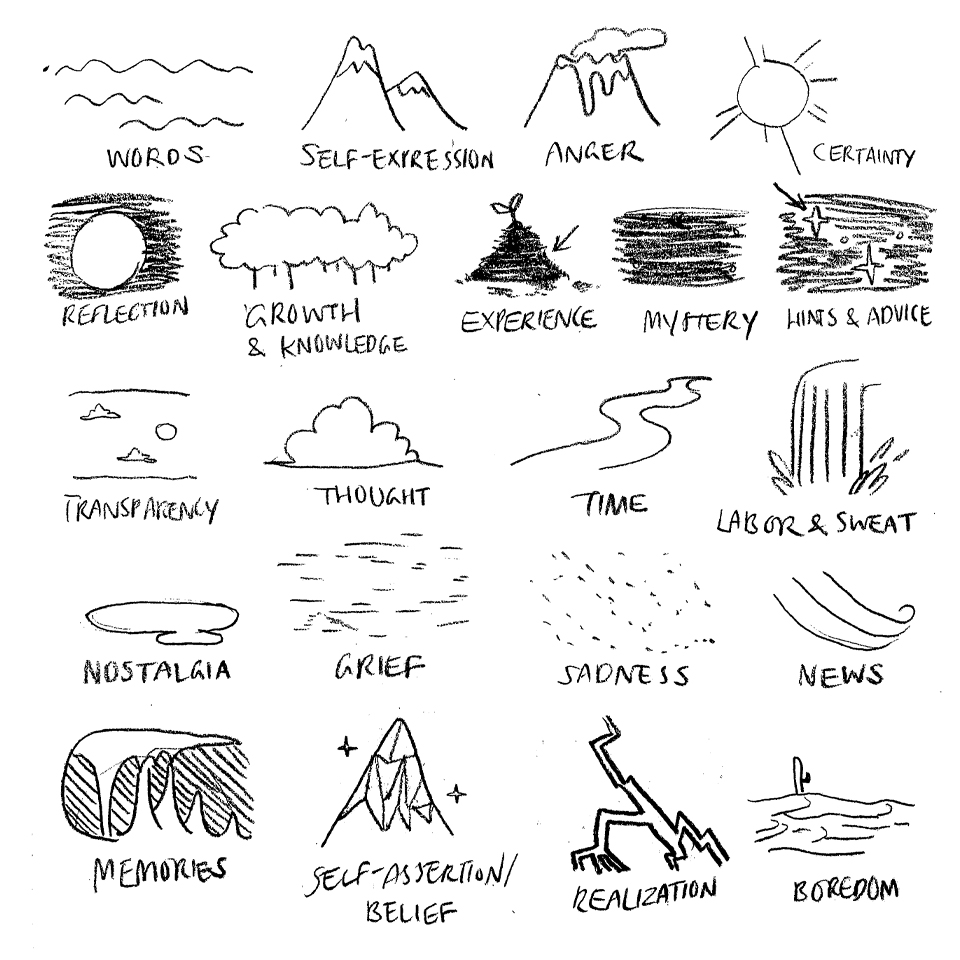 WORDS
SELF-EXPRESSION
ANGER
CERTAINTY
REFLECTION
GROWTH
& KNOWLEDGE
EXPERIENCE
MYSTERY
HINTS & ADVICE
TRANSPARENCY
THOUGHT
TIME
LABOR & SWEAT
NOSTALGIA
GRIEF
SADNESS
NEWS
MEMORIES
SELF-ASSERTION/
BELIEF
REALIZATION
BOREDOM